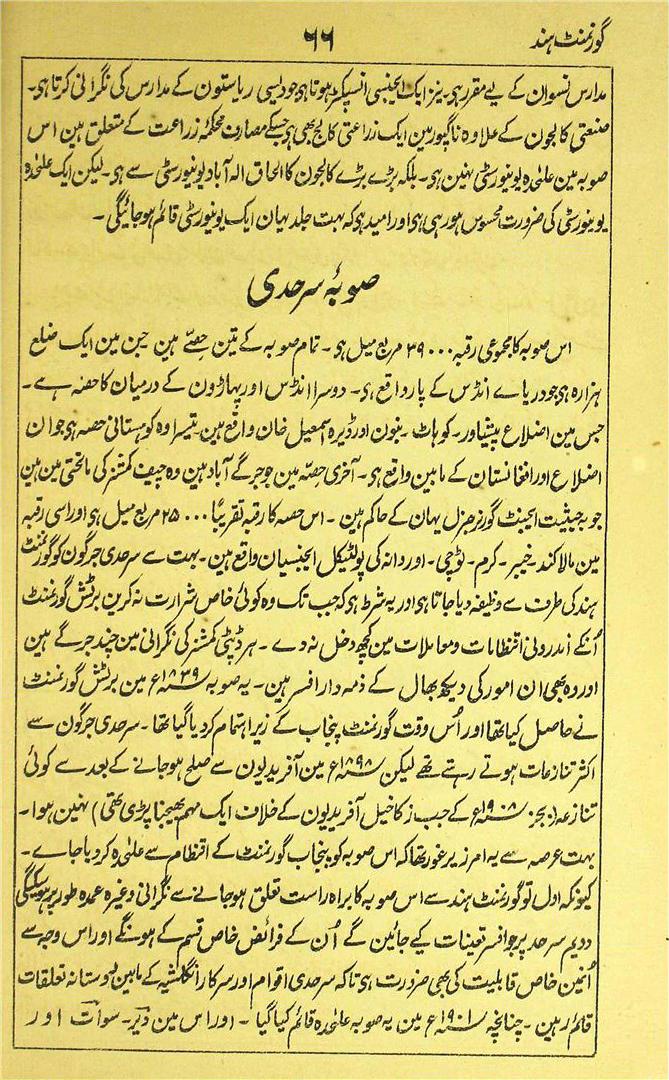 گورنمنٹ ہند
۶۶
مدارس نسوان کے لیے مقرر ہی۔ نیز ایک ایجنسی انسپکٹر ہوتا ہی جو دیسی ریاستون کے مدارس کی نگرانی کرتا ہی۔
صنعتی کالجون کے علاوہ ناگپور مین ایک زراعتی کالج بھی ہی جسکے مصارف محکمۂ زراعت کے متعلق ہین اس
صوبہ مین علٰحدہ یونیورسٹی نہین ہی۔ بلکہ بڑے بڑے کالجون کا الحاق الہ آباد یونیورسٹی سے ہی۔ لیکن ایک علٰحدہ
یونیورسٹی کی ضرورت محسوس ہو رہی ہی اور امید ہی کہ بہت جلد یہان ایک یونیورسٹی قائم ہو جائیگی۔
صوبۂ سرحدی
اس صوبہ کا مجموعی رقبہ ۳۹۰۰۰ مربع میل ہی۔ تمام صوبہ کے تین حصّے ہین جن مین ایک ضلع
ہزارہ ہی جو دریاے انڈس کے پار واقع ہی۔ دوسرا انڈس اور پہاڑون کے درمیان کا حصہ ہے۔
جس مین اضلاع پیشاور۔ کوہاٹ۔ بنون اور ڈیرہ اسمعیل خان واقع ہین۔ تیسرا وہ کوہستانی حصہ ہی جو ان
اضلاع اور افغانستان کے مابین واقع ہی۔ آخری حصّہ مین جو جرگے آباد ہین وہ چیف کمشنر کی ماتحتی مین ہین
جو بہ حیثیت ایجنٹ گورنر جنرل یہان کے حاکم ہین۔ اس حصہ کا رقبہ تقریباً ۲۵۰۰۰ مربع میل ہی اور اسی رقبہ
مین مالاکند۔ خیبر۔ کرم۔ ٹوچی۔ اور دانہ کی پولٹیکل ایجنسیان واقع ہین۔ بہت سے سرحدی جرگون کو گورنمنٹ
ہند کی طرف سے وظیفہ دیا جاتا ہی اور یہ شرط ہی کہ جب تک وہ کوئی خاص شرارت نہ کرین برٹش گورنمنٹ
اُنکے اندرونی انتظامات و معاملات مین کچھ دخل نہ دے۔ ہر ڈپٹی کمشنر کی نگرانی مین چند جرگے ہین
اور وہ بھی ان امور کی دیکھ بھال کے ذمہ دار افسر ہین۔ یہ صوبہ ۱۸۳۹ء مین برٹش گورنمنٹ
نے حاصل کیا تھا اور اُس وقت گورنمنٹ پنجاب کے زیر اہتمام کر دیا گیا تھا۔ سرحدی جرگون سے
اکثر تنازعات ہوتے رہتے تھے لیکن ۱۸۹۸ء مین آفریدیون سے صلح ہو جانے کے بعد سے کوئی
تنازعہ (بجز ۱۹۰۸ء کے جب زکا خیل آفریدیون کے خلاف ایک مہم بھیجنا پڑی تھی) نہین ہوا۔
بہت عرصہ سے یہ امر زیر غور تھا کہ اس صوبہ کو پنجاب گورنمنٹ کے انتظام سے علٰحدہ کر دیا جاے۔
کیونکہ اول تو گورنمنٹ ہند سے اس صوبہ کا براہ راست تعلق ہو جانے سے نگرانی وغیرہ عمدہ طور پر ہو سکیگی
دویم سرحد پر جو افسر تعینات کیے جائین گے اُن کے فرائض خاص قسم کے ہونگے اور اس وجہ سے
اُنمین خاص قابلیت کی بھی ضرورت ہی تاکہ سرحدی اقوام اور سرکار انگلشیہ کے مابین دوستانہ تعلقات
قائم رہین۔ چنانچہ ۱۹۰۱ء مین یہ صوبہ علٰحدہ قائم کیا گیا۔ اور اس مین دیر۔ سوات اور